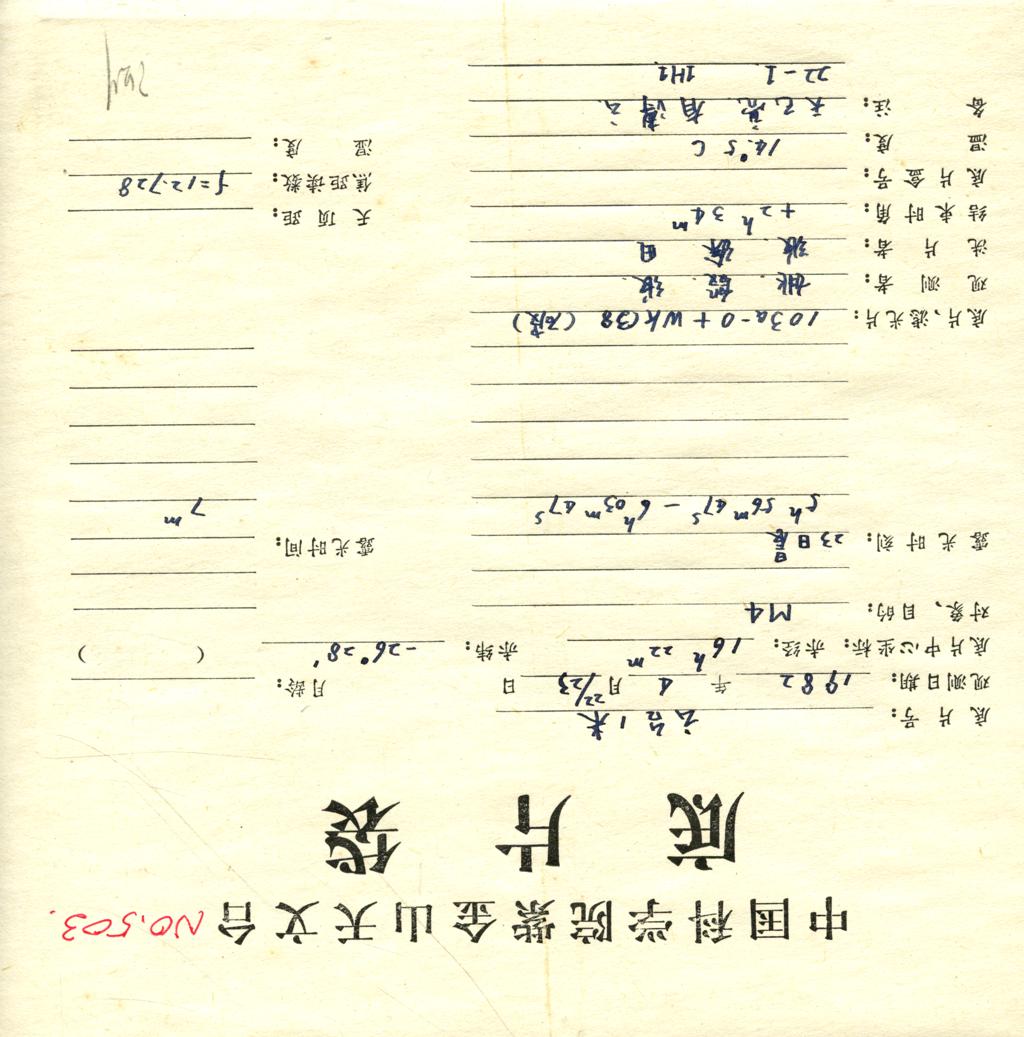 中国科学院紫金山天文台 NO.503.
底片袋
底片号: 云台1米
观测日期: 1982年4月22/23日 月龄:
底片中心坐标: 赤经: 16h 22m 赤纬: -26°28' ( )
对象、目的: M4
露光时刻: 23日晨 露光时间:
5h 56m 47s - 6h 03m 47s 7m
底片、滤光片: 103a-O + WK38 (硬)
观测者: 姚 张
洗片者: 张 徐 田
结束时角: +2h 34m 天顶距:
底片盒号: 焦距读数: f=12.728
温度: 14°.5 C 湿度:
备注: 天已亮. 有薄云
22-1. 1H1